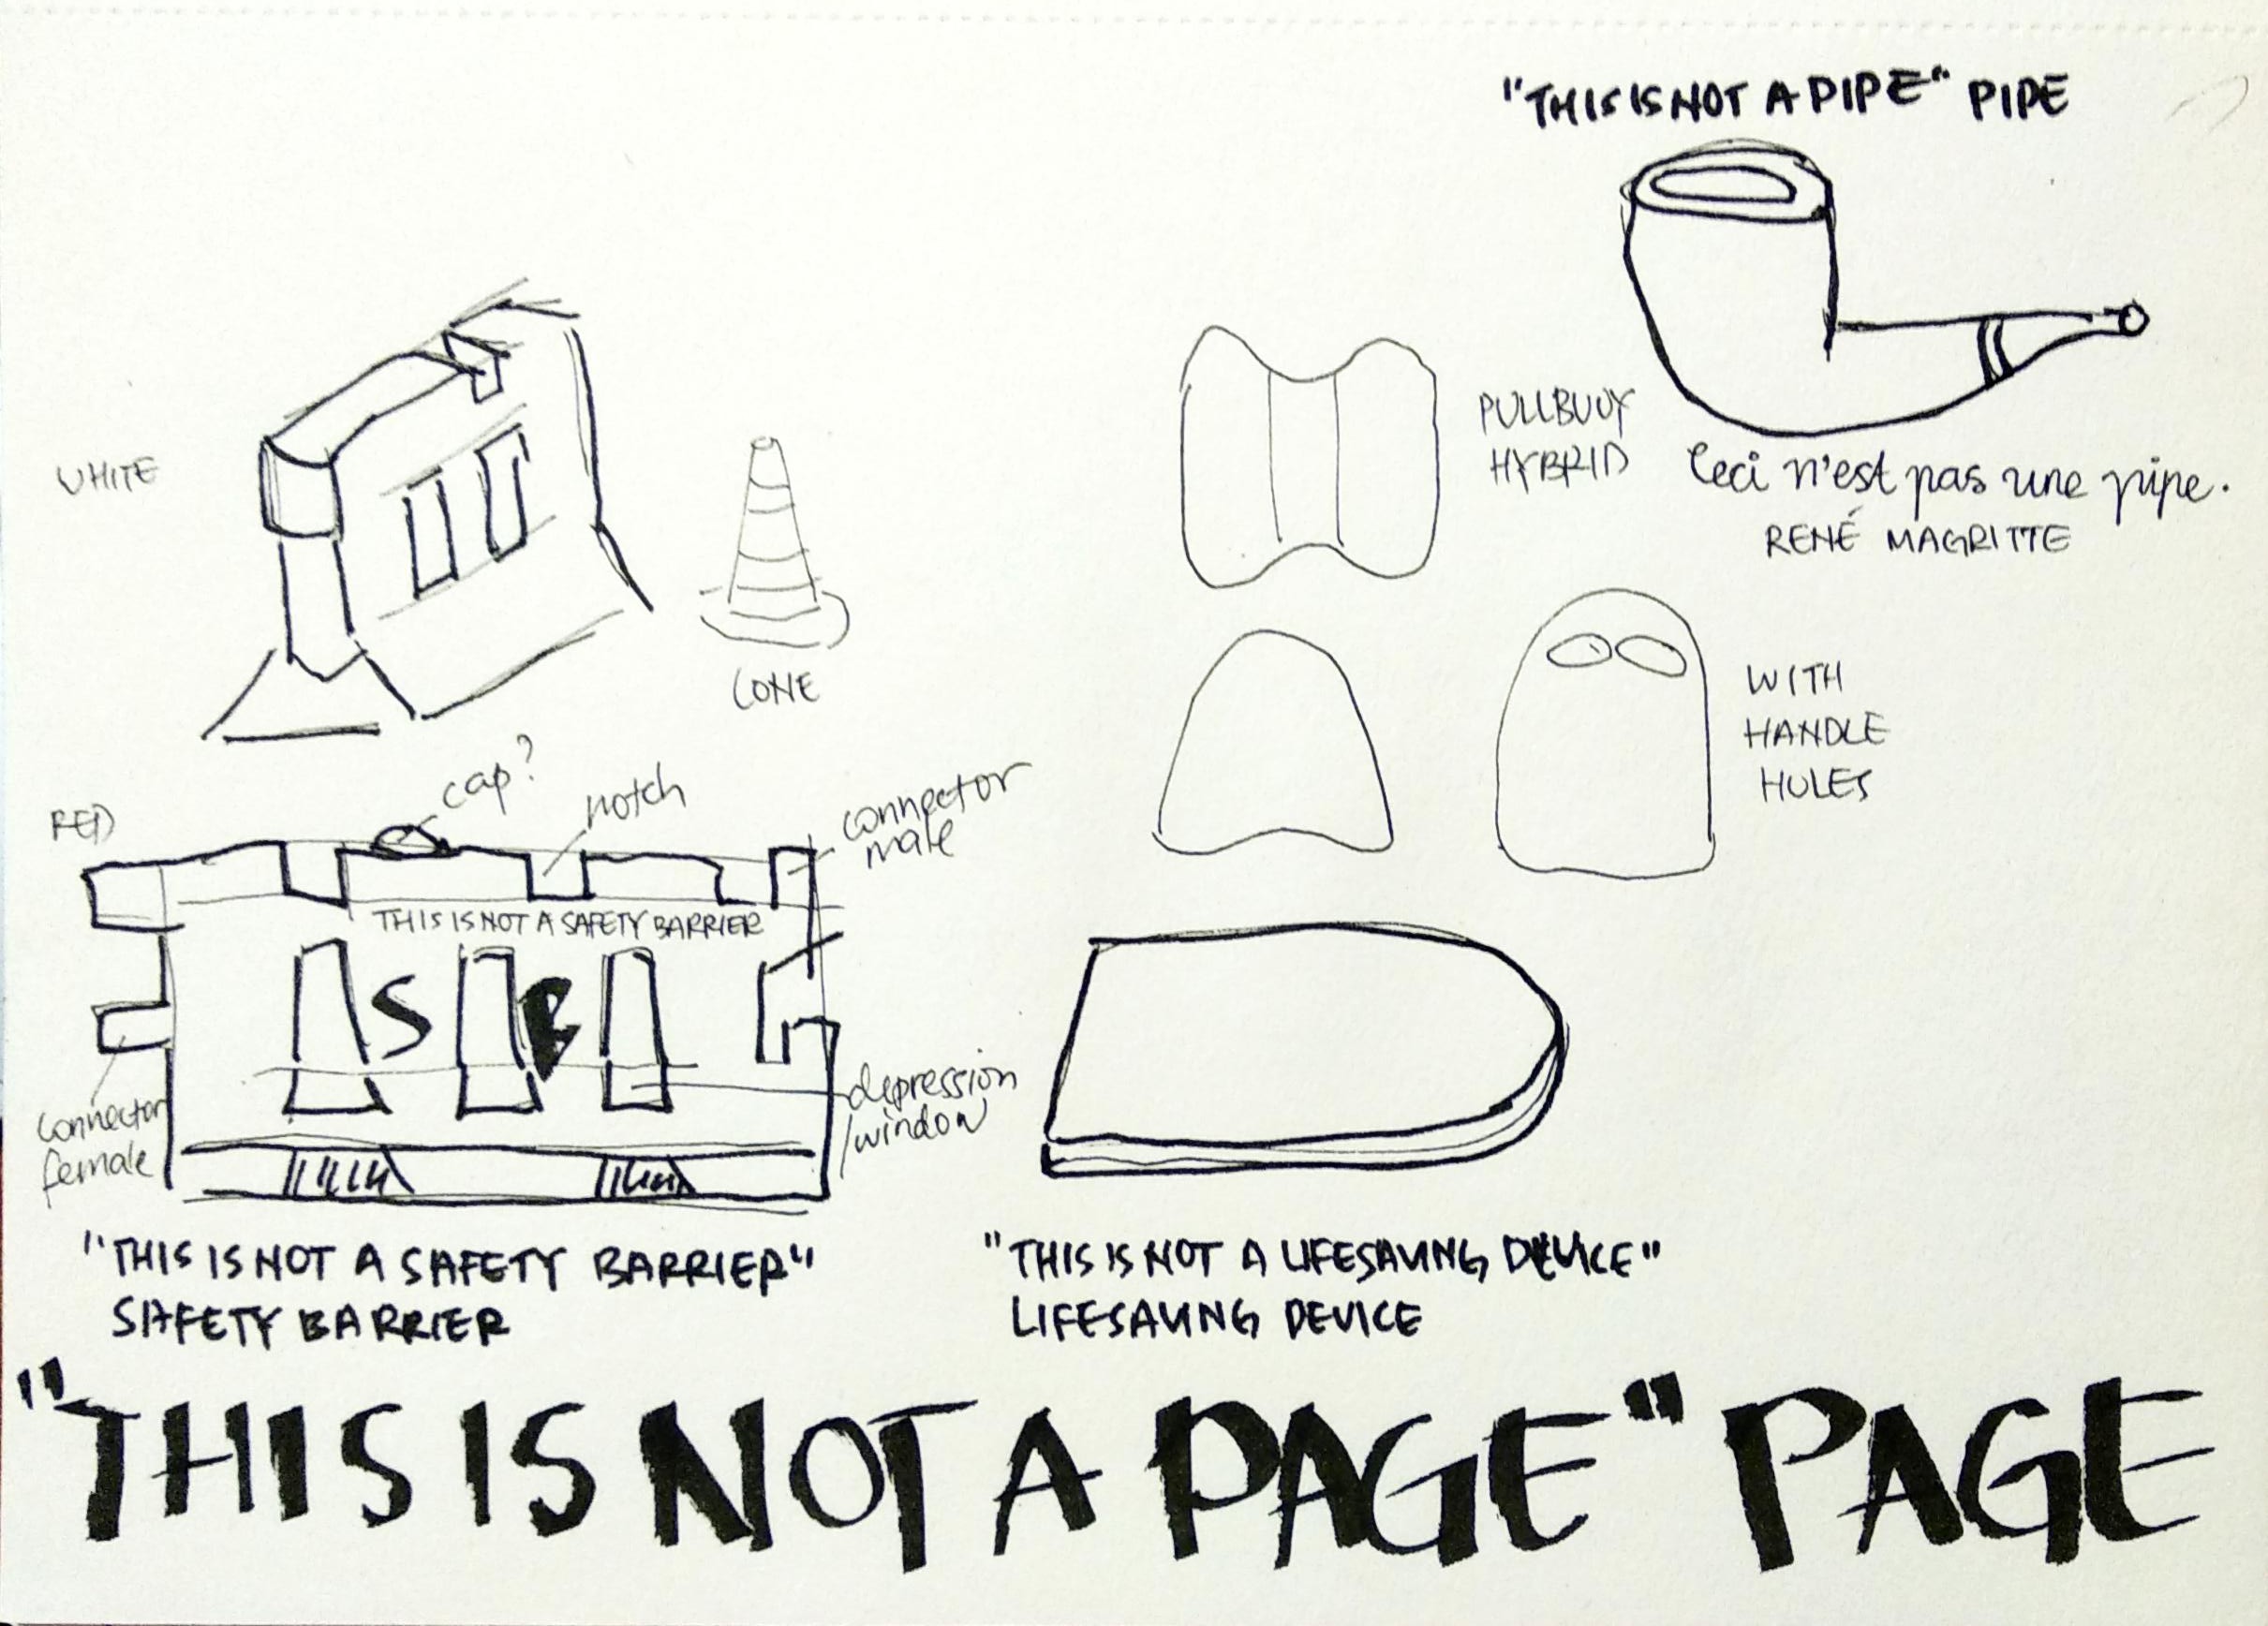 "THIS IS NOT A PIPE" PIPE
Ceci n'est pas une pipe.
RENÉ MAGRITTE
PULLBUOY
HYBRID
WITH
HANDLE
HOLES
WHITE
CONE
RED
cap?
notch
connector
male
THIS IS NOT A SAFETY BARRIER
S B
connector
female
depression
/window
"THIS IS NOT A SAFETY BARRIER"
SAFETY BARRIER
"THIS IS NOT A LIFESAVING DEVICE"
LIFESAVING DEVICE
"THIS IS NOT A PAGE" PAGE